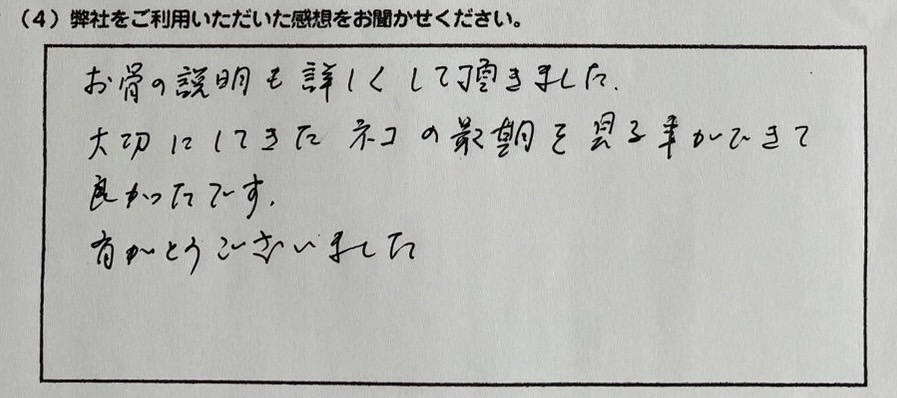 （4）弊社をご利用いただいた感想をお聞かせください。
お骨の説明も詳しくして頂きました.
大切にしてきたネコの最期を見る事ができて
良かったです.
有がとうございました